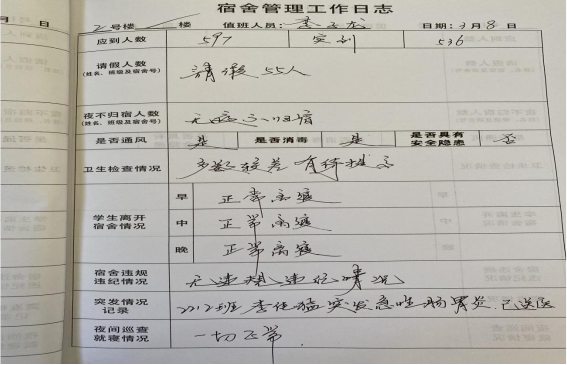 宿舍管理工作日志
2号楼 楼 值班人员: 日期:3月8日
应到人数 597 实到 536
请假人数 (姓名、班级及宿舍号) 请假55人
夜不归宿人数 (姓名、班级及宿舍号) 无
是否通风 是 是否消毒 是 是否具有安全隐患 否
卫生检查情况 多数较差 有待提高
学生离开宿舍情况 早 正常离寝
中 正常离寝
晚 正常离寝
宿舍违规违纪情况 无违规违纪情况
突发情况记录 2212班 李 猛突发急性肠胃炎.已送医
夜间巡查就寝情况 一切正常
月 日